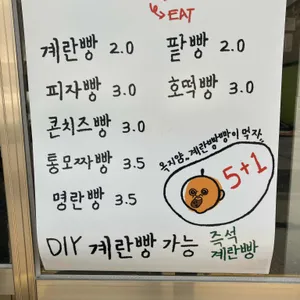 EAT
계란빵 2.0 팥빵 2.0
피자빵 3.0 호떡빵 3.0
콘치즈빵 3.0
통모짜빵 3.5
명란빵 3.5
옥지얌.. 계란빵빵이 먹자.
5+1
DIY 계란빵 가능 즉석
계란빵